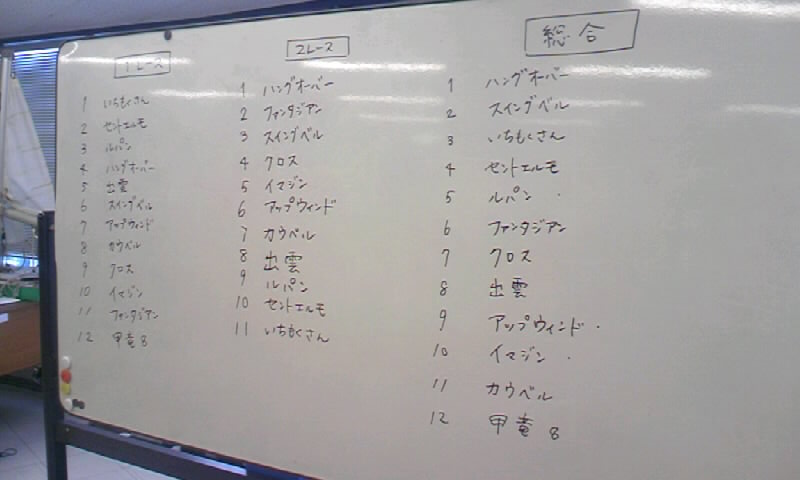 1レース
1 いちもくさん
2 セントエルモ
3 ルパン
4 ハングオーバー
5 出雲
6 スイングベル
7 アップウィンド
8 カウベル
9 クロス
10 イマジン
11 ファンタジアン
12 甲竜8
2レース
1 ハングオーバー
2 ファンタジアン
3 スイングベル
4 クロス
5 イマジン
6 アップウィンド
7 カウベル
8 出雲
9 ルパン
10 セントエルモ
11 いちもくさん
総合
1 ハングオーバー
2 スイングベル
3 いちもくさん
4 セントエルモ
5 ルパン
6 ファンタジアン
7 クロス
8 出雲
9 アップウィンド
10 イマジン
11 カウベル
12 甲竜8